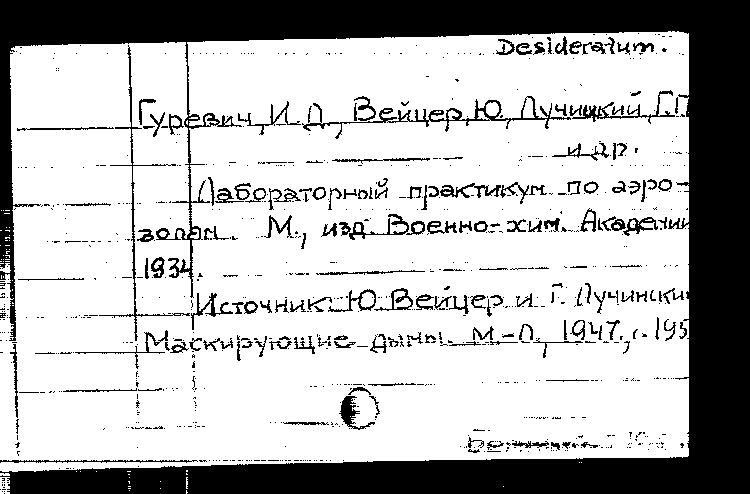 Desideratum.
Гуревич, И. Д., Вейцер, Ю., Лучицкий, Г.П
и др.
Лабораторный практикум по аэро-
золям. М., изд. Военно-хим. Академии
1934.
Источник: Ю. Вейцер и Г. Лучински
Маскирующие дымы. М.-Л., 1947, с. 195